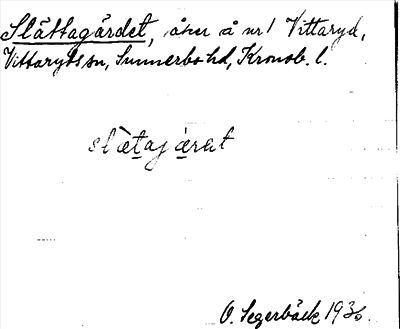 Slättagärdet, åker å nr 1 Vittaryd,
Vittaryds sn, Sunnerbo hd, Kronob. l.
slæ̀tajæ̀rat
O. Segerbäck 1936.